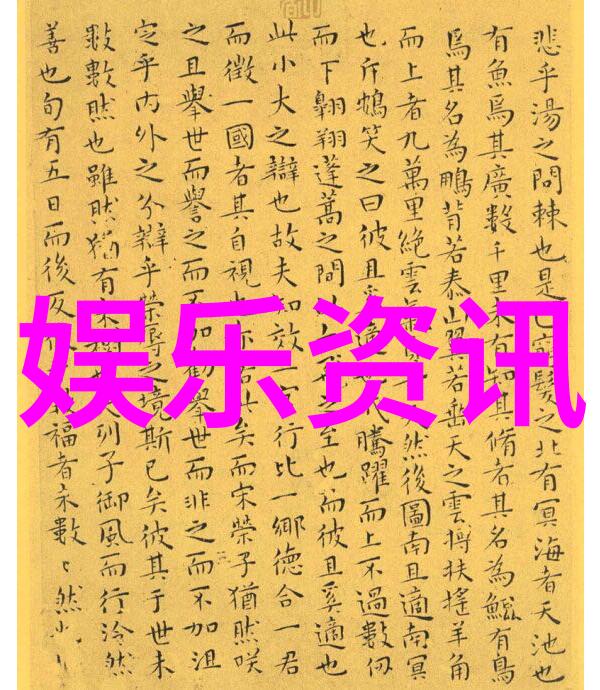 悲乎湯之問棘也是已窮髮之北有冥海者天池也
有魚焉其廣數千里未有知其脩者其名為鯤有鳥
焉其名為鵬背若泰山翼若垂天之雲摶扶搖羊角
而上者九萬里絕雲氣天然後圖南且適南冥
也斥鴳笑之曰彼且奚適騰躍而上不過數仞
而下翱翔蓬蒿之間之至也而彼且奚適也
此小大之辯也故夫知效一官行比一鄉德合一君
而徵一國者其自視也亦若此矣而宋榮子猶然咲
之且舉世而譽之而不加勸舉世而非之而不加沮
定乎內外之分辯乎榮辱之境斯已矣彼其于世未
數數然也雖然猶有未樹也夫列子御風而行泠然
善也旬有五日而後反致福者未數〻然也
娱乐资讯